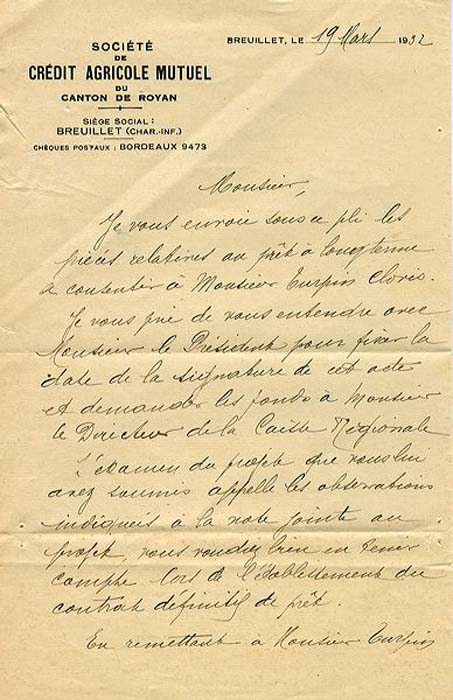 SOCIÉTÉ
DE
CRÉDIT AGRICOLE MUTUEL
DU
CANTON DE ROYAN
SIÈGE SOCIAL :
BREUILLET (CHAR.-INF.)
CHÈQUES POSTAUX : BORDEAUX 9473
BREUILLET, LE 19 Mars 1932
Monsieur,
Je vous envoie sous ce pli les
pièces relatives au prêt à long terme
à consentir à Monsieur Turpin Clovis.
Je vous prie de vous entendre avec
Monsieur le Président pour fixer la
date de la signature de cet acte
et demander les fonds à Monsieur
le Directeur de la Caisse Régionale
L'examen du projet que vous lui
avez soumis appelle les observations
indiquées à la note jointe au
projet, vous voudrez bien en tenir
compte lors de l'établissement du
contrat définitif de prêt.
En remettant à Monsieur Turpin